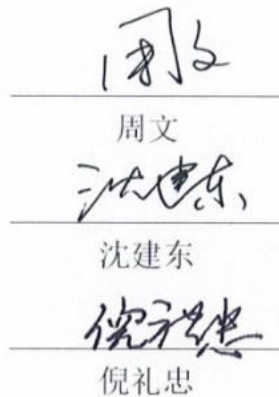 周文
周文
沈建东
沈建东
倪礼忠
倪礼忠